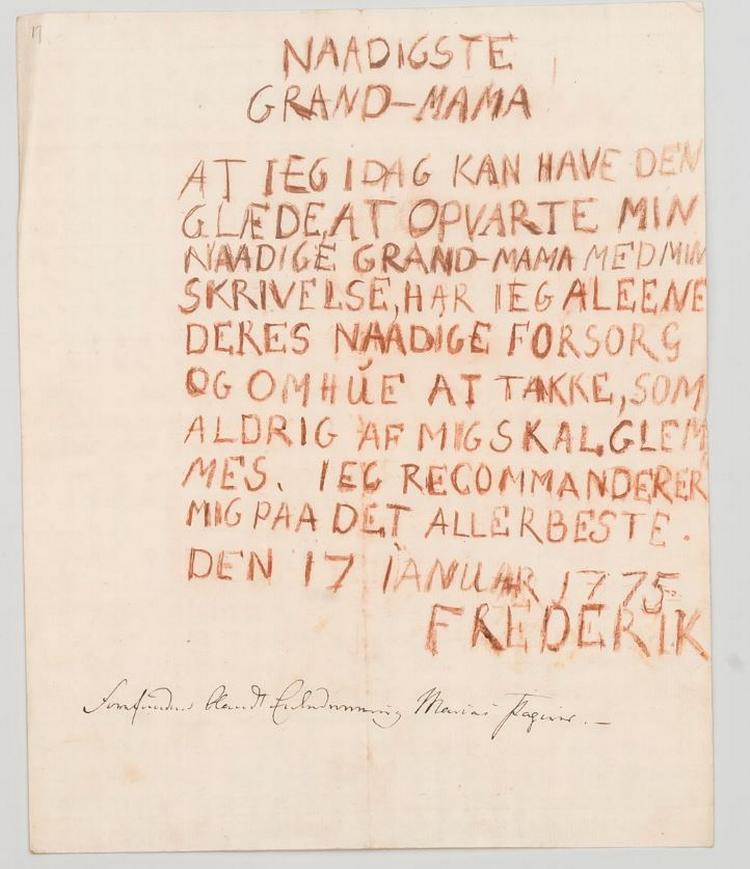 17
NAADIGSTE
GRAND-MAMA
AT IEG IDAG KAN HAVE DEN
GLÆDE, AT OPVARTE MIN
NAADIGE GRAND-MAMA MED MIN
SKRIVELSE, HAR IEG ALEENE
DERES NAADIGE FORSORG
OG OMHÚE AT TAKKE, SOM
ALDRIG AF MIG SKAL GLEM
MES. IEG RECOMMANDERER
MIG PAA DET ALLERBESTE.
DEN 17 IANUAR 1775
FREDERIK
Forefunden blandt Enkedronning Maries Papirer. –